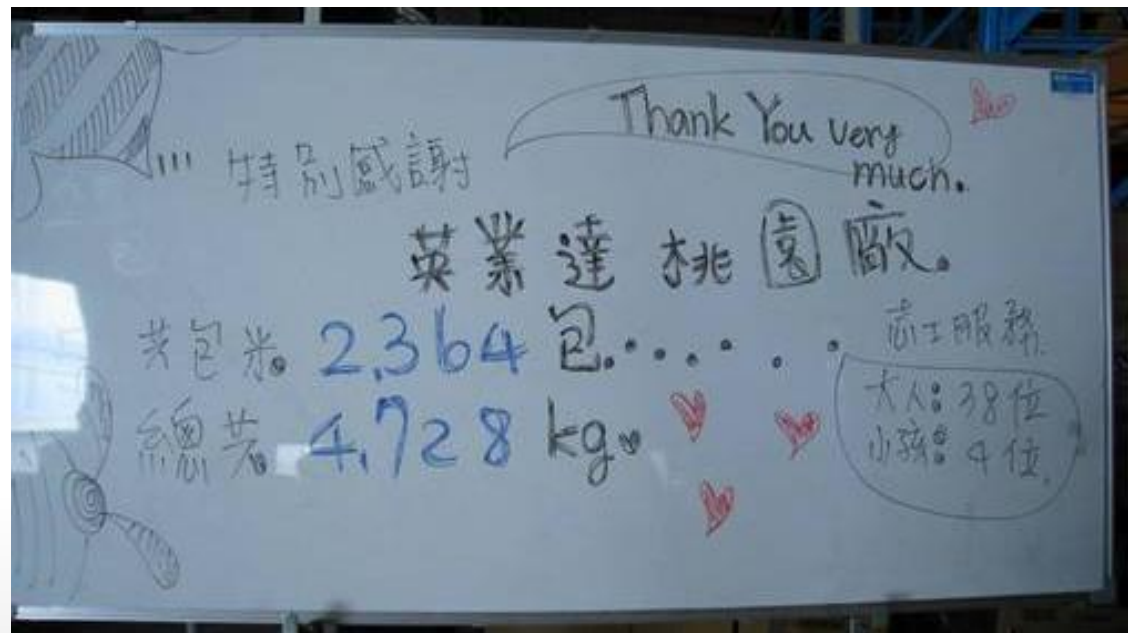 Thank You very
much.
特別感謝
英業達桃園廠。
共包米。2,364包.......
總共。4,728 kg。
志工服務.
大人:38位
小孩:4位.